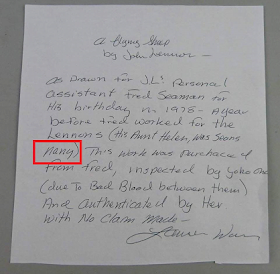 a flying Sheep
by John Lennon –
as Drawn for JL's Personal
assistant Fred Seaman for
His birthday in 1978 – A year
before Fred worked for the
Lennons (His Aunt Helen, was Seans
Nany) This work was purchased
from Fred, inspected by Yoko Ono
(due to Bad Blood between them)
And authenticated by Her
with No Claim Made –